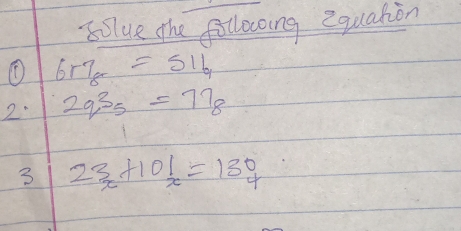 Solve the following Equation
① 6r7₈ = 511₉
2. 2q3₅ = 77₈
3 23ₓ + 101ₓ = 130₄